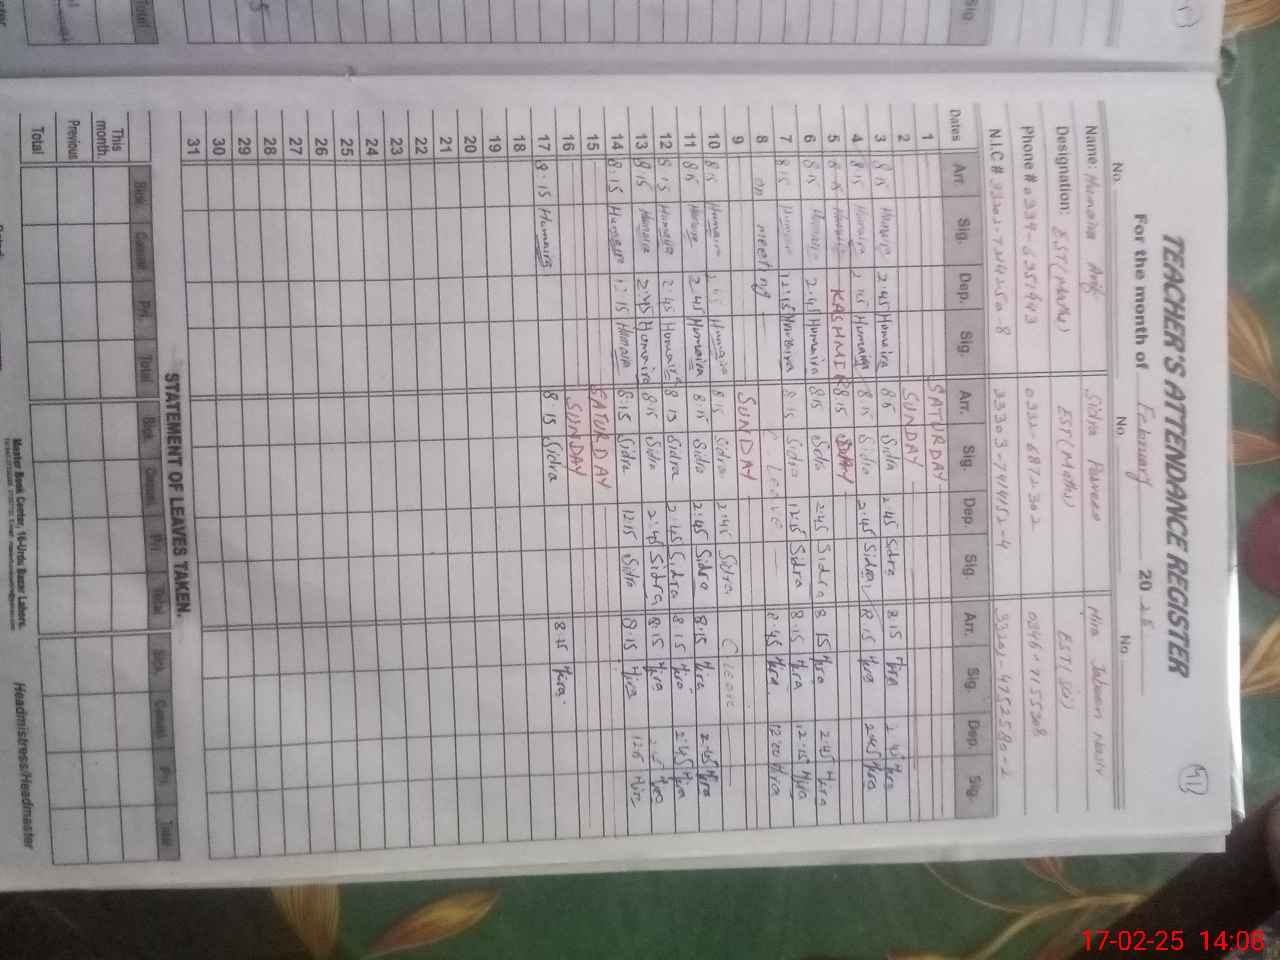 TEACHER'S ATTENDANCE REGISTER
For the month of February 2025
No. No. No.
Name: Humaira Sidra Parveen Hira Jabeen
Designation: EST (Maths) EST (Maths) EST
Phone # 0332-6872302
N.I.C #
Dates Arr. Sig. Dep. Sig. Arr. Sig. Dep. Sig. Arr. Sig. Dep. Sig.
1 SATURDAY
2 SUNDAY
3 8:15 Humaira 2:45 Humaira Sidra 2:45 Sidra 8:15 Hira 2:45 Hira
4 8:15 Humaira 2:45 Humaira 8:15 Sidra 2:45 Sidra 8:15 Hira 2:45 Hira
5 KASHMIR DAY
6 8:15 Humaira 2:45 Humaira 8:15 Sidra 2:45 Sidra 8:15 Hira 2:45 Hira
7 8:15 Humaira 12:15 Humaira 8:15 Sidra 12:15 Sidra 8:15 Hira 12:15 Hira
8 on meeting Leave 8:45 Hira 12:00 Hira
9 SUNDAY
10 8:15 Humaira 2:45 Humaira 8:15 Sidra 2:45 Sidra C Leave
11 8:15 Humaira 2:45 Humaira 8:15 Sidra 2:45 Sidra 8:15 Hira 2:45 Hira
12 8:15 Humaira 2:45 Humaira 8:15 Sidra 2:45 Sidra 8:15 Hira 2:45 Hira
13 8:15 Humaira 2:45 Humaira 8:15 Sidra 2:45 Sidra 8:15 Hira 2:45 Hira
14 8:15 Humaira 12:15 Humaira 8:15 Sidra 12:15 Sidra 8:15 Hira 12:15 Hira
15 SATURDAY
16 SUNDAY
17 8:15 Humaira 8:15 Sidra 8:15 Hira
18
19
20
21
22
23
24
25
26
27
28
29
30
31
STATEMENT OF LEAVES TAKEN.
Sick Casual Pri. Total Sick Casual Pri. Total Sick Casual Pri. Total
This month.
Previous
Total
Master Book Center, 16-Urdu Bazar Lahore.
Headmistress/Headmaster
17-02-25 14:08